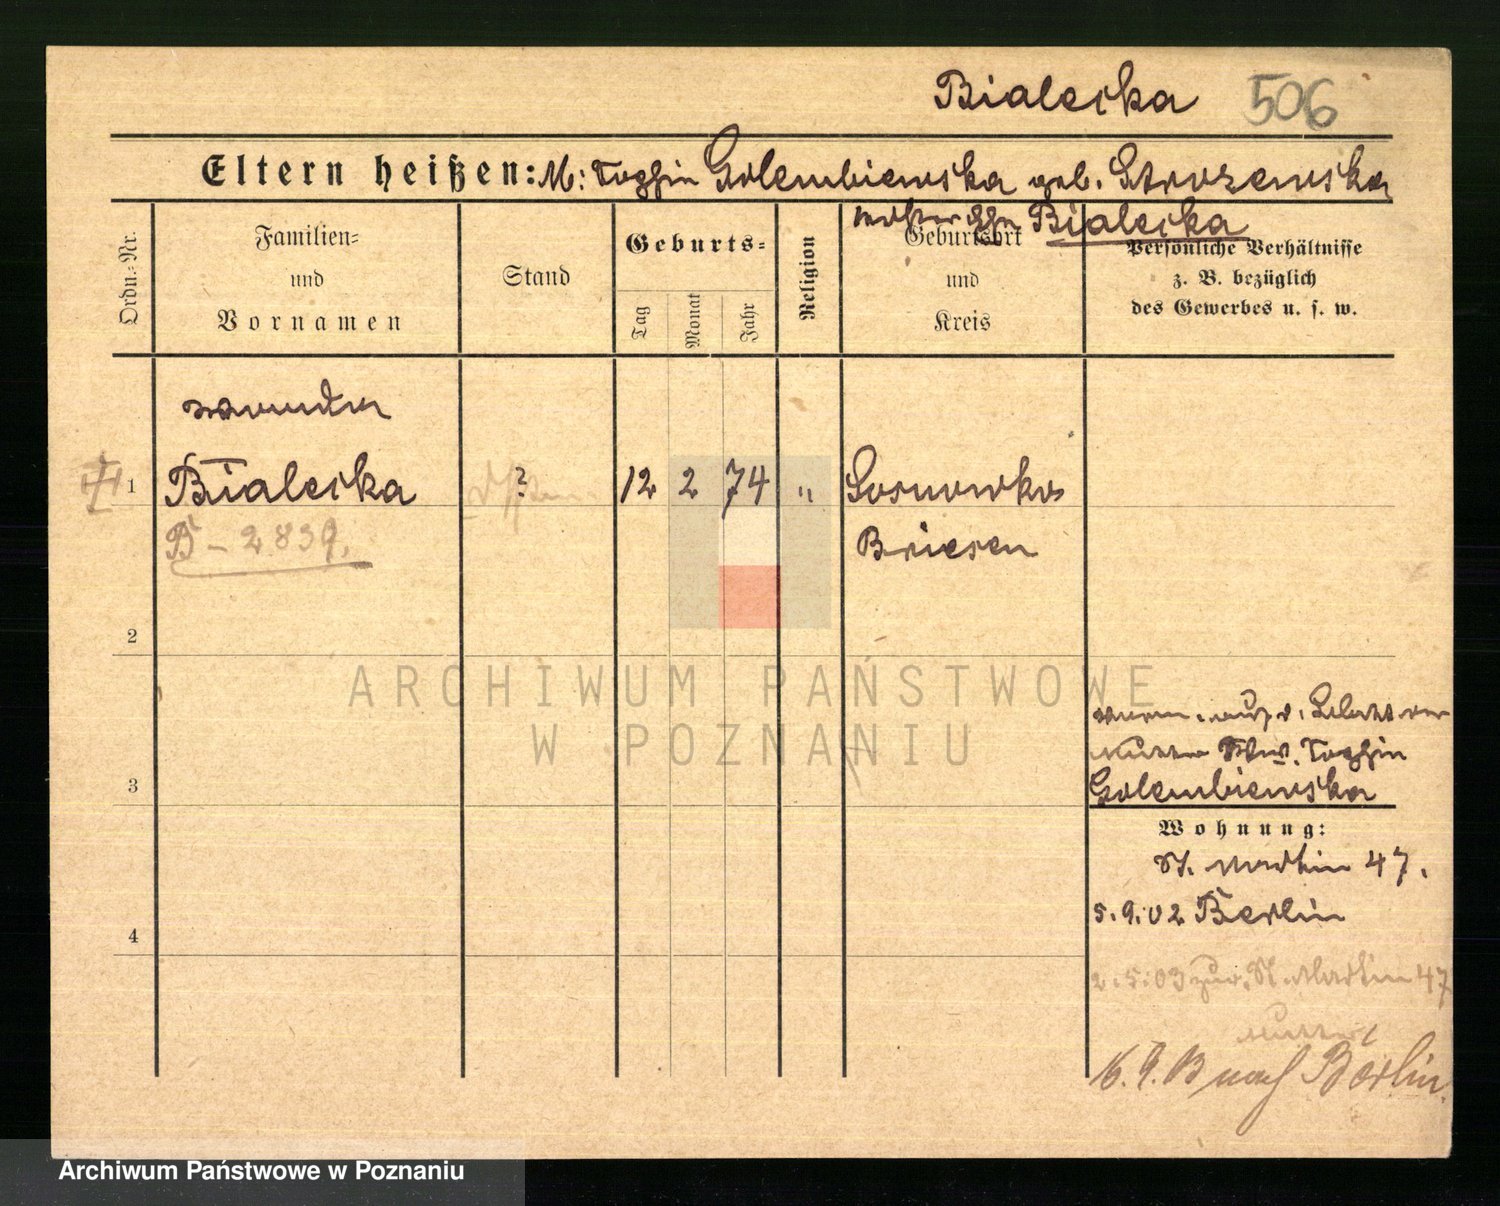 Bialecka 506
Eltern heißen: M: Golembiewska geb. Strozewska
Bialecka
Ordn.-Nr.
Familien-
und
Vornamen
Stand
Geburts-
Tag
Monat
Jahr
Religion
Geburtsort
und
Kreis
Persönliche Verhältnisse
z. B. bezüglich
des Gewerbes u. s. w.
Wanda
1 Bialecka ? 12 2 74 " Sosnowko
B - 2839. Briesen
2
ARCHIWUM PAŃSTWOWE
W POZNANIU
Mutter Ww.
3 Golembiewska
Wohnung:
St. Martin 47.
5.9.02 Berlin
4
2.5.03 zur. St. Martin 47
Mutter
16.9.13 nach Berlin
Archiwum Państwowe w Poznaniu